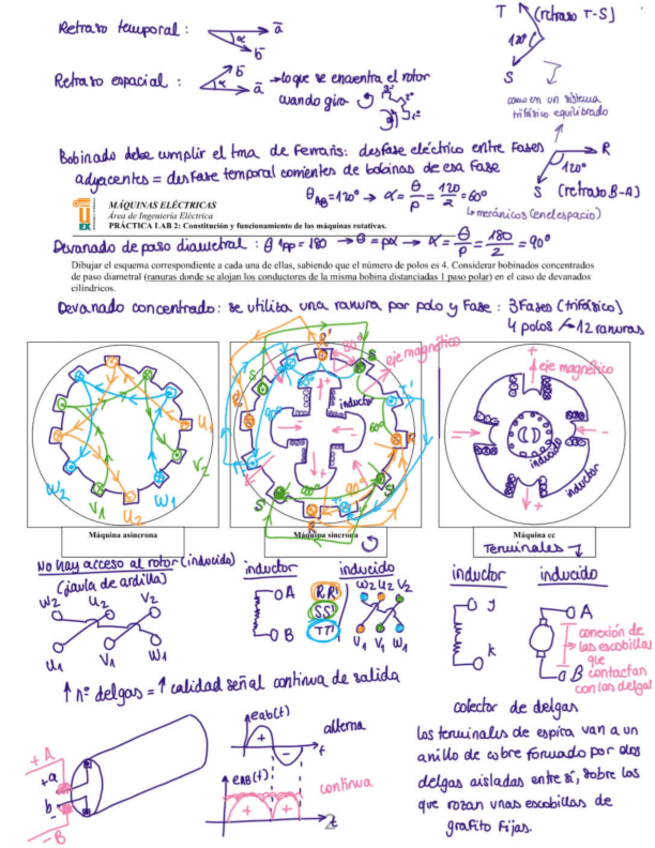 Retraso temporal:
α
a̅
b̅
T
(retraso T-S)
120°
S
Retraso espacial:
b̅
α
a̅
→ lo que se encuentra el rotor
cuando gira
como en un sistema
trifásico equilibrado
R
120°
S (retraso B-A)
Bobinado debe cumplir el tma de Ferraris: desfase eléctrico entre Fases
adyacentes = desfase temporal corrientes de bobinas de esa Fase
θAB=120° → α = θ/p = 120/2 = 60°
↳ mecánicos (en el espacio)
UEX
MÁQUINAS ELÉCTRICAS
Área de Ingeniería Eléctrica
PRÁCTICA LAB 2: Constitución y funcionamiento de las máquinas rotativas.
Devanado de paso diametral: θ 1pp = 180 → θ = pα → α = θ/p = 180/2 = 90°
Dibujar el esquema correspondiente a cada una de ellas, sabiendo que el número de polos es 4. Considerar bobinados concentrados
de paso diametral (ranuras donde se alojan los conductores de la misma bobina distanciadas 1 paso polar) en el caso de devanados
cilíndricos.
Devanado concentrado: se utiliza una ranura por polo y Fase: 3 Fases (trifásico)
4 polos
12 ranuras
U1
V2
W2
V1
U2
W1
R'
S
eje magnético
T'
inductor
60°
90°
R
S'
eje magnético
inducido
inductor
Máquina asíncrona
Máquina síncrona
Máquina cc
Terminales
No hay acceso al rotor (inducido)
(jaula de ardilla)
W2 U2 V2
U1 V1 W1
inductor
A
B
inducido
RR'
SS'
TT'
W2 U2 V2
U1 V1 W1
inductor
J
K
inducido
A
B
conexión de
las escobillas
que
contactan
con las delgas
↑ nº delgas = ↑ calidad señal continua de salida
+A
+a
b
-B
eab(t)
+
-
t
alterna
eAB(t)
+
+
t
continua
2
colector de delgas
Los terminales de espira van a un
anillo de cobre formado por dos
delgas aisladas entre sí, sobre las
que rozan unas escobillas de
grafito fijas.